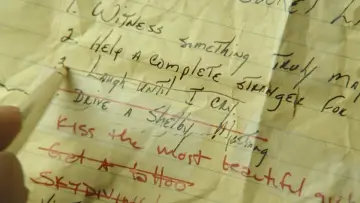 1. Witness something truly
2. Help a complete stranger for
3. Laugh until I cry
Drive a Shelby Mustang
Kiss the most beautiful
Get a tattoo
Skydiving